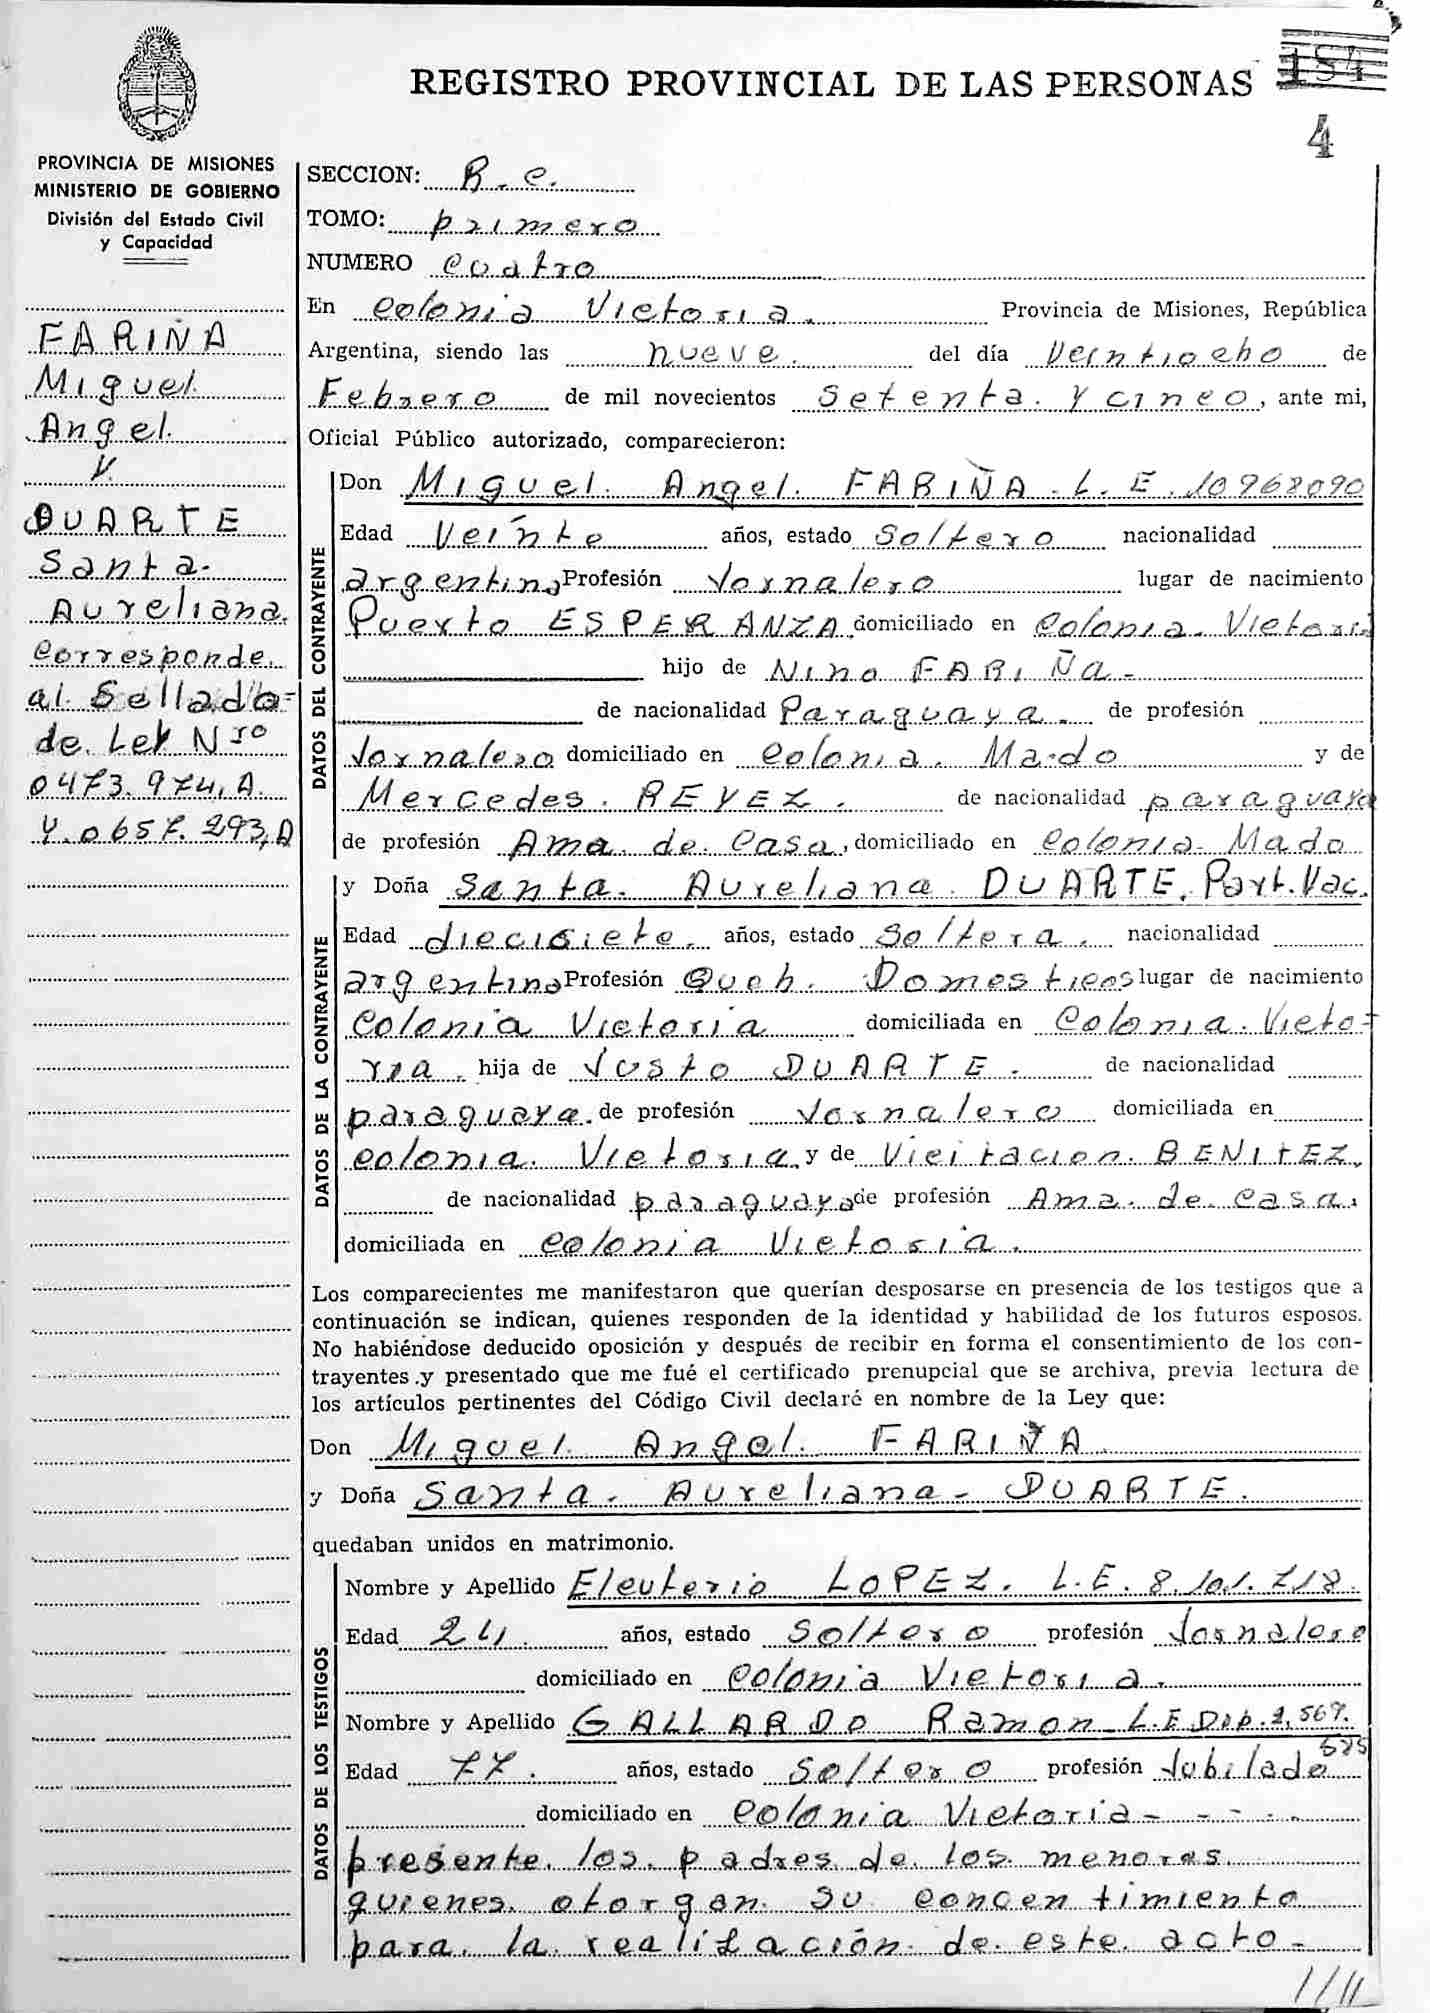 REGISTRO PROVINCIAL DE LAS PERSONAS 154
4
PROVINCIA DE MISIONES
MINISTERIO DE GOBIERNO
División del Estado Civil
y Capacidad
FARIÑA
Miguel
Angel
y
DUARTE
Santa
Aureliana.
Corresponde
al Sellado
de Ley Nro
0473.974,A.
y.0657.293,A
SECCION: R.C.
TOMO: primero
NUMERO Cuatro
En Colonia Victoria. Provincia de Misiones, República
Argentina, siendo las nueve. del día Veintiocho de
Febrero de mil novecientos Setenta y cinco, ante mi,
Oficial Público autorizado, comparecieron:
DATOS DEL CONTRAYENTE
Don Miguel Angel FARIÑA. L.E. 10968090
Edad Veinte años, estado Soltero nacionalidad
argentina Profesión Jornalero lugar de nacimiento
Puerto ESPERANZA domiciliado en Colonia Victoria
hijo de Nino FARIÑA-
de nacionalidad Paraguaya. de profesión
Jornalero domiciliado en Colonia Mado y de
Mercedes REYEZ. de nacionalidad paraguaya
de profesión Ama de Casa, domiciliado en Colonia Mado
DATOS DE LA CONTRAYENTE
y Doña Santa Aureliana DUARTE, Part. Vac.
Edad diecisiete, años, estado Soltera, nacionalidad
argentina Profesión Queh. Domesticos lugar de nacimiento
Colonia Victoria domiciliada en Colonia Victo-
ria, hija de Justo DUARTE. de nacionalidad
paraguaya. de profesión Jornalero domiciliada en
colonia Victoria, y de Vicitacion BENITEZ,
de nacionalidad paraguaya de profesión Ama de casa,
domiciliada en Colonia Victoria.
Los comparecientes me manifestaron que querían desposarse en presencia de los testigos que a
continuación se indican, quienes responden de la identidad y habilidad de los futuros esposos.
No habiéndose deducido oposición y después de recibir en forma el consentimiento de los con-
trayentes .y presentado que me fué el certificado prenupcial que se archiva, previa lectura de
los artículos pertinentes del Código Civil declaré en nombre de la Ley que:
Don Miguel Angel FARIÑA
y Doña Santa Aureliana DUARTE.
quedaban unidos en matrimonio.
DATOS DE LOS TESTIGOS
Nombre y Apellido Eleuterio LOPEZ. L.E. 8.101.718.
Edad 24. años, estado Soltero profesión Jornalero
domiciliado en Colonia Victoria.
Nombre y Apellido GALLARDO Ramon L.E. Dup. 2,567.
585
Edad 77. años, estado Soltero profesión Jubilado
domiciliado en Colonia Victoria- - - - -
presente los padres de los menores
quienes otorgan su concentimiento
para la realización de este acto-